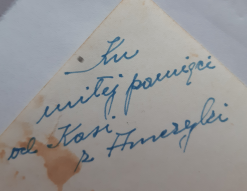 Ku
miłej pamięci
od Kasi
z Ameryki